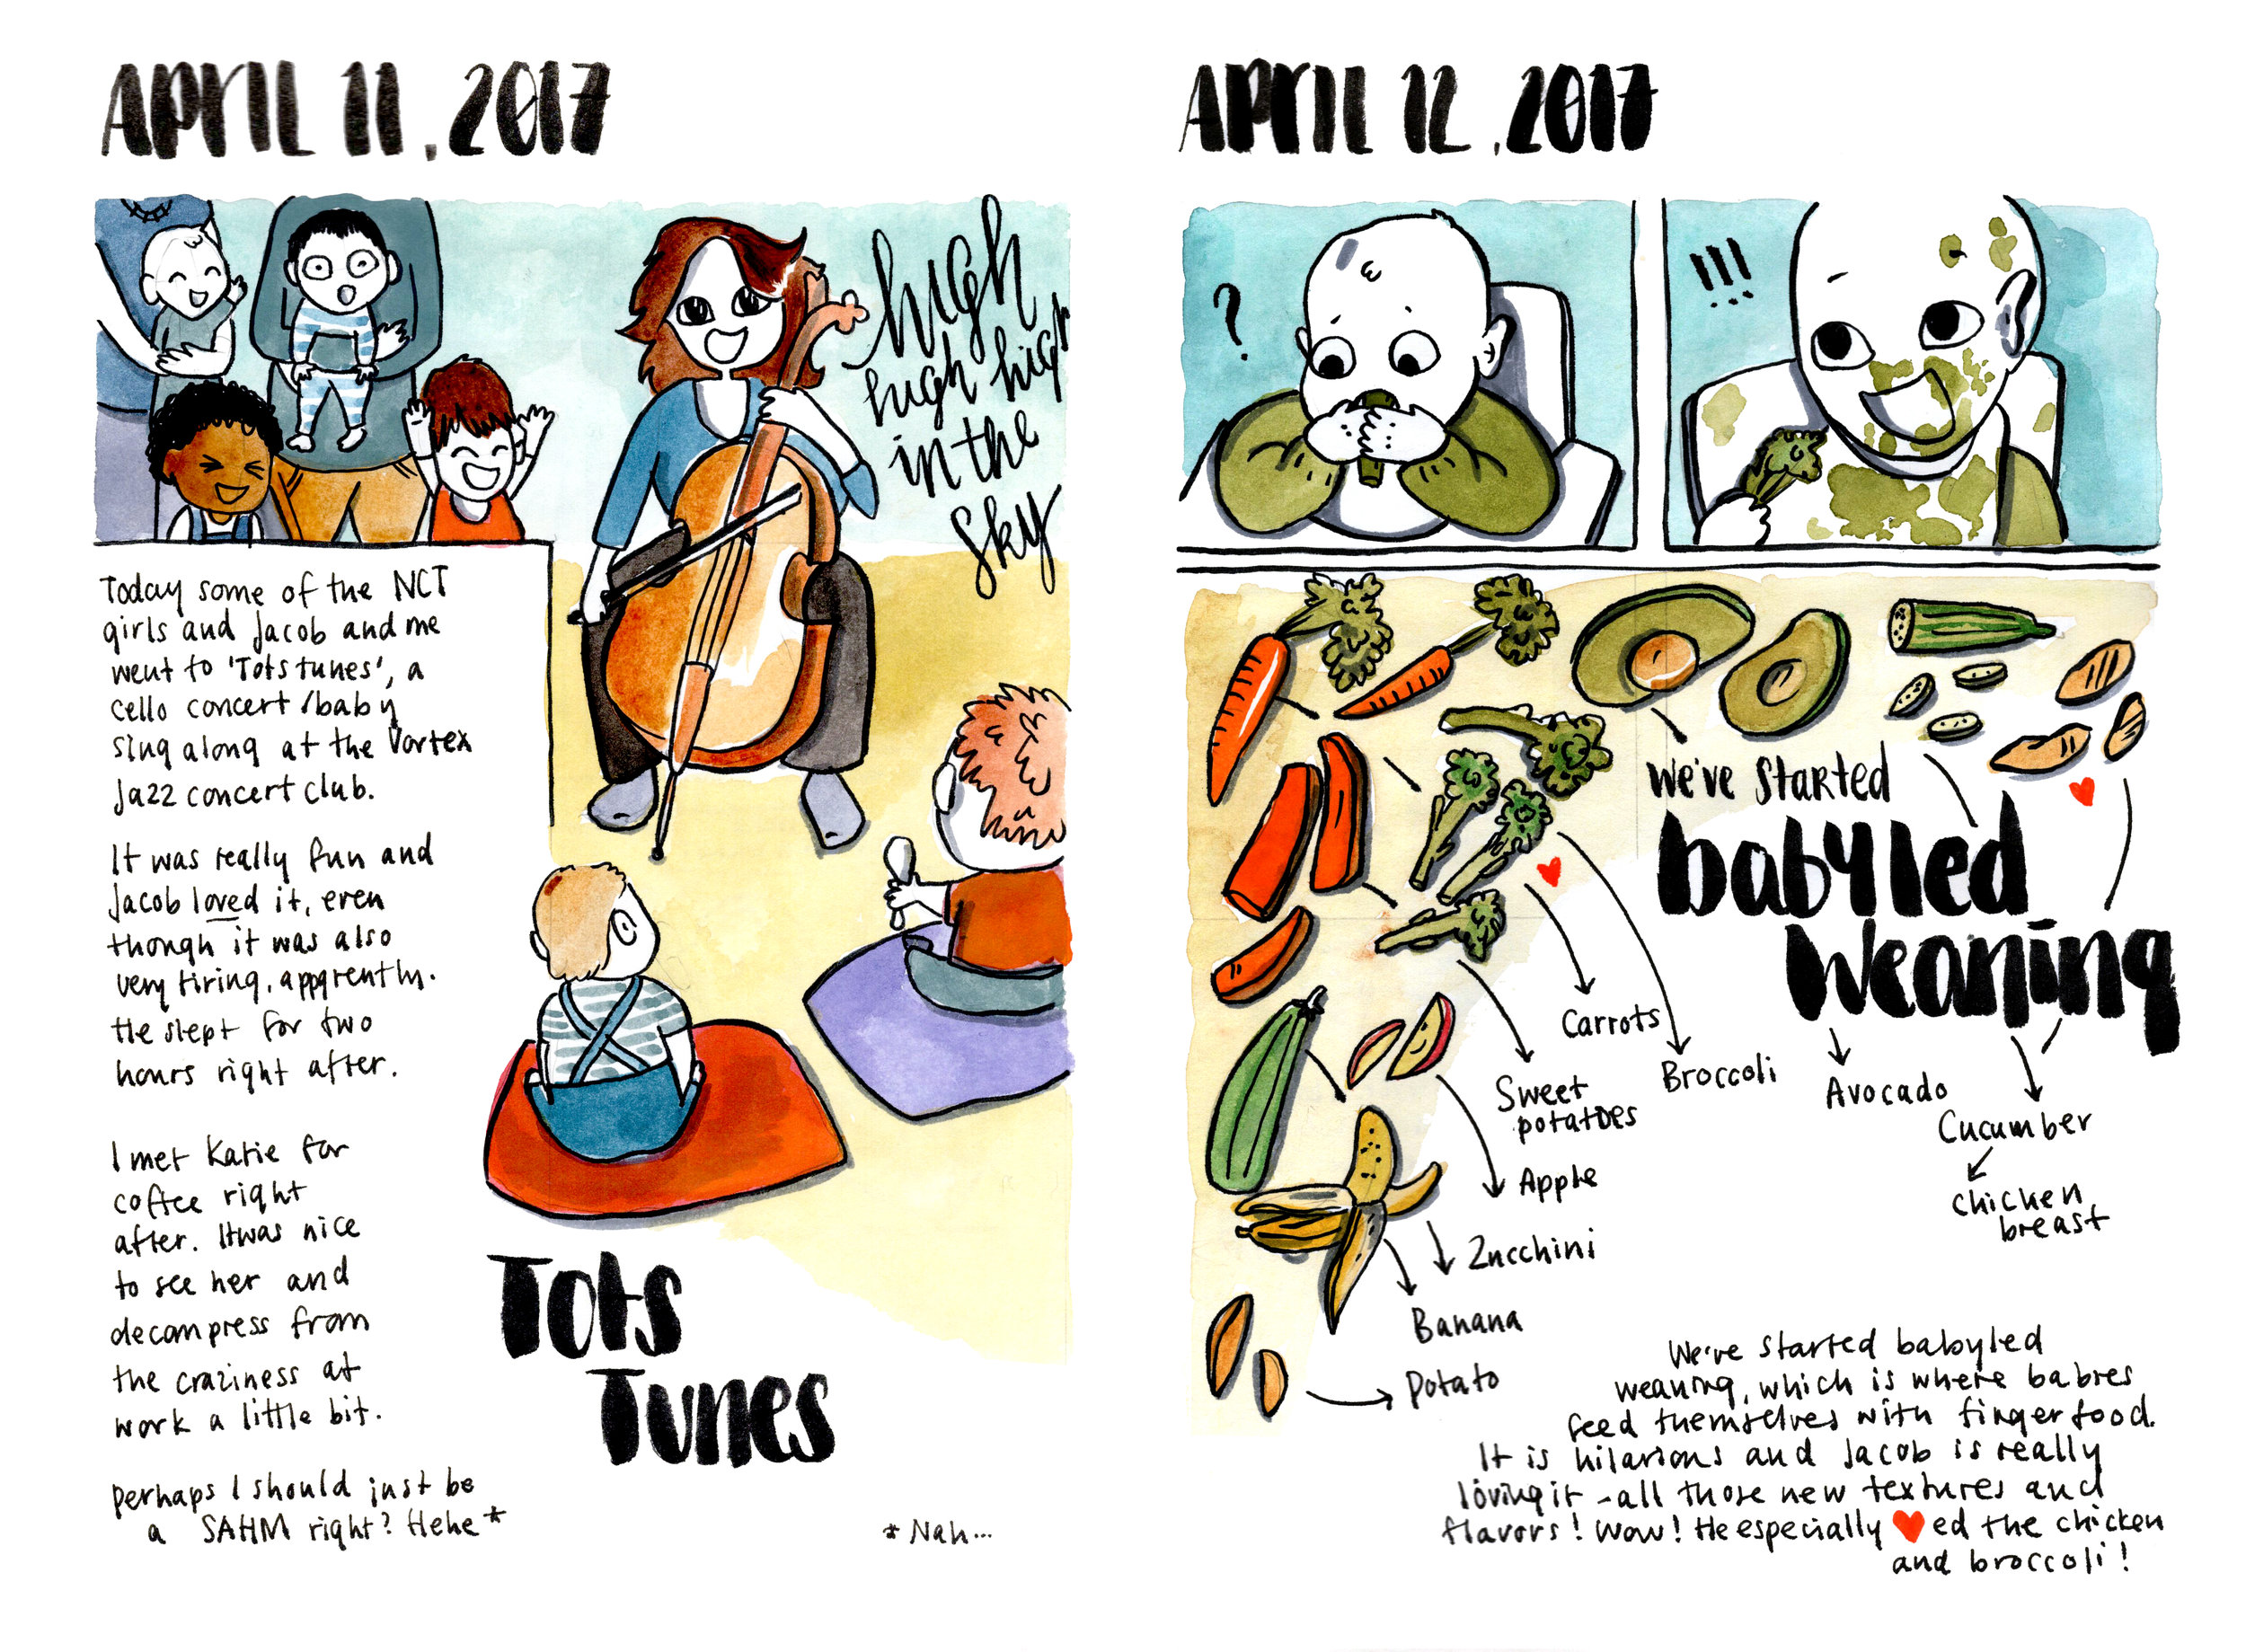 APRIL 11, 2017
high
high high
in the
sky
Today some of the NCT
girls and Jacob and me
went to 'Tots tunes', a
cello concert/baby
sing along at the Vortex
Jazz concert club.
It was really fun and
Jacob loved it, even
though it was also
very tiring, apparently.
He slept for two
hours right after.
I met Katie for
coffee right
after. It was nice
to see her and
decompress from
the craziness at
work a little bit.
perhaps I should just be
a SAHM right? Hehe*
Tots
Tunes
*Nah...
APRIL 12, 2017
?
!!!
We've started
baby led
weaning
Carrots
Broccoli
Sweet
potatoes
Avocado
Cucumber
chicken
breast
Apple
Zucchini
Banana
Potato
We've started babyled
weaning, which is where babies
feed themselves with finger food.
It is hilarious and Jacob is really
loving it - all those new textures and
flavors! Wow! He especially ♥ed the chicken
and broccoli!